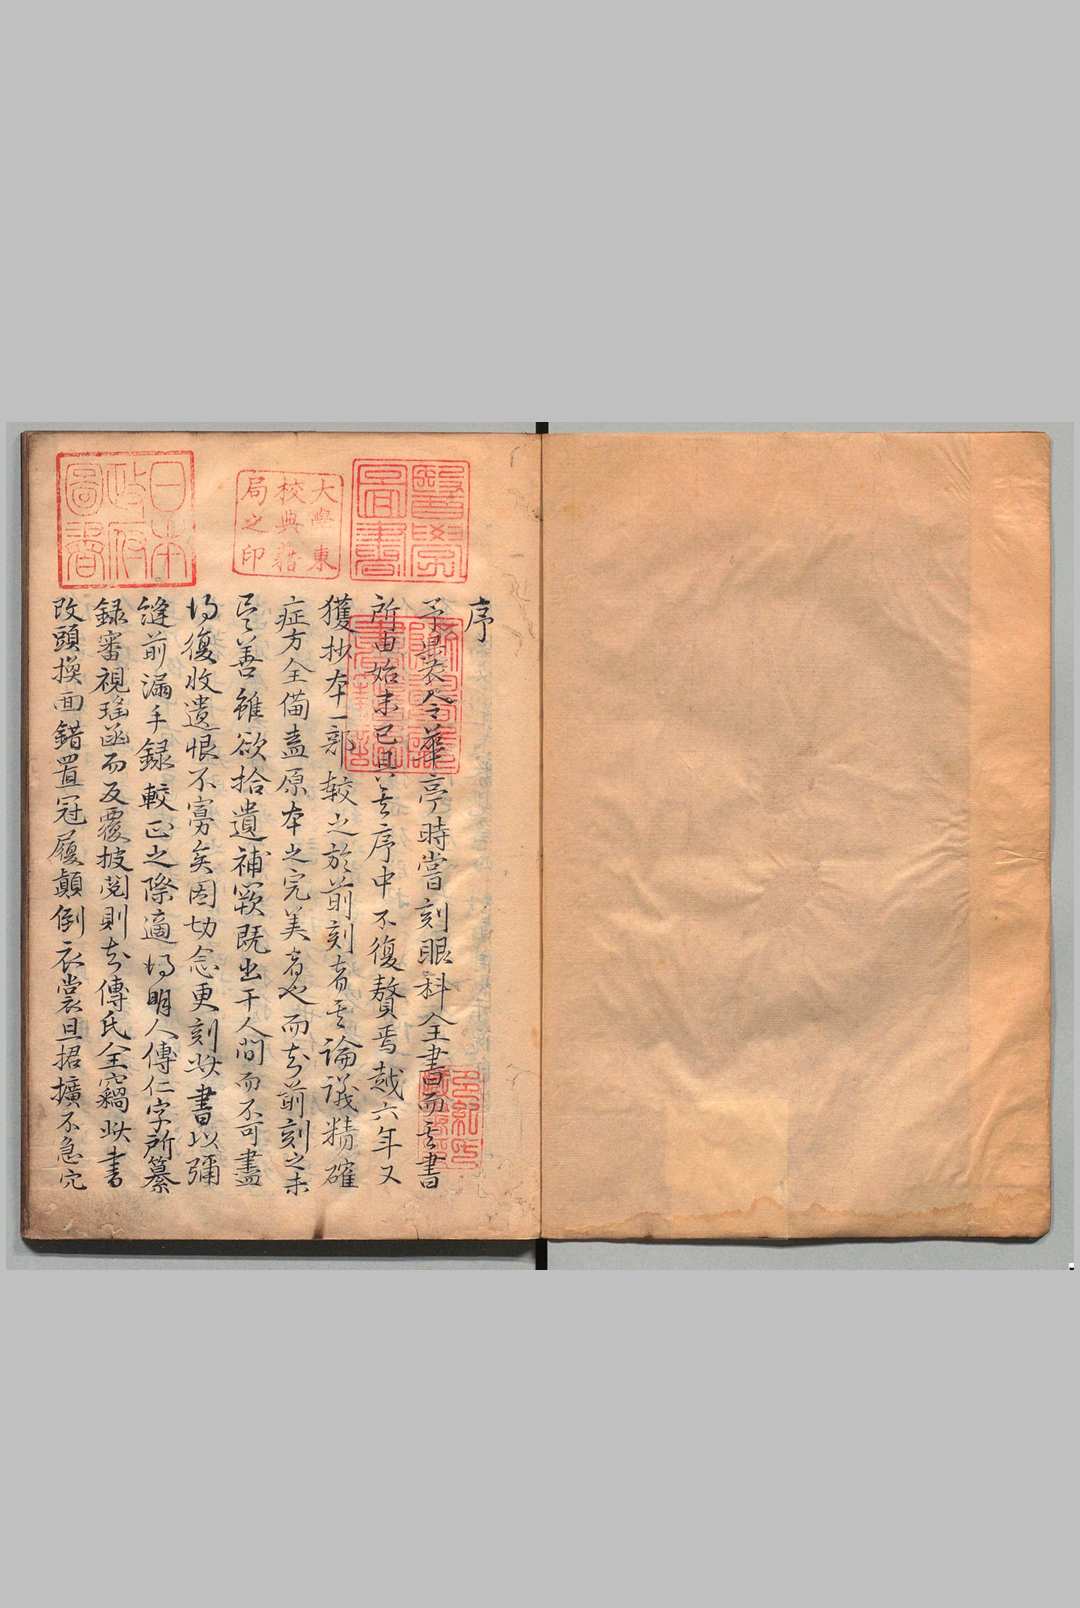 醫學圖書
大學東
校典籍
局之印
日本政府圖書
序
予曩令華亭時嘗刻眼科全書而其書
所由始末已具其序中不復贅焉越六年又
獲抄本一部較之於前刻者其論議精確
症方全備盖原本之完美者也而知前刻之未
尽善雖欲拾遺補闕既出于人間而不可盡
得復收遺恨不寡矣因切念更刻此書以彌
縫前漏手録較正之際適得明人傳仁字所纂
録審視瑤函而反覆披閲則知傳氏全竊此書
改頭換面錯置冠履顛倒衣裳且捃摭不急冗